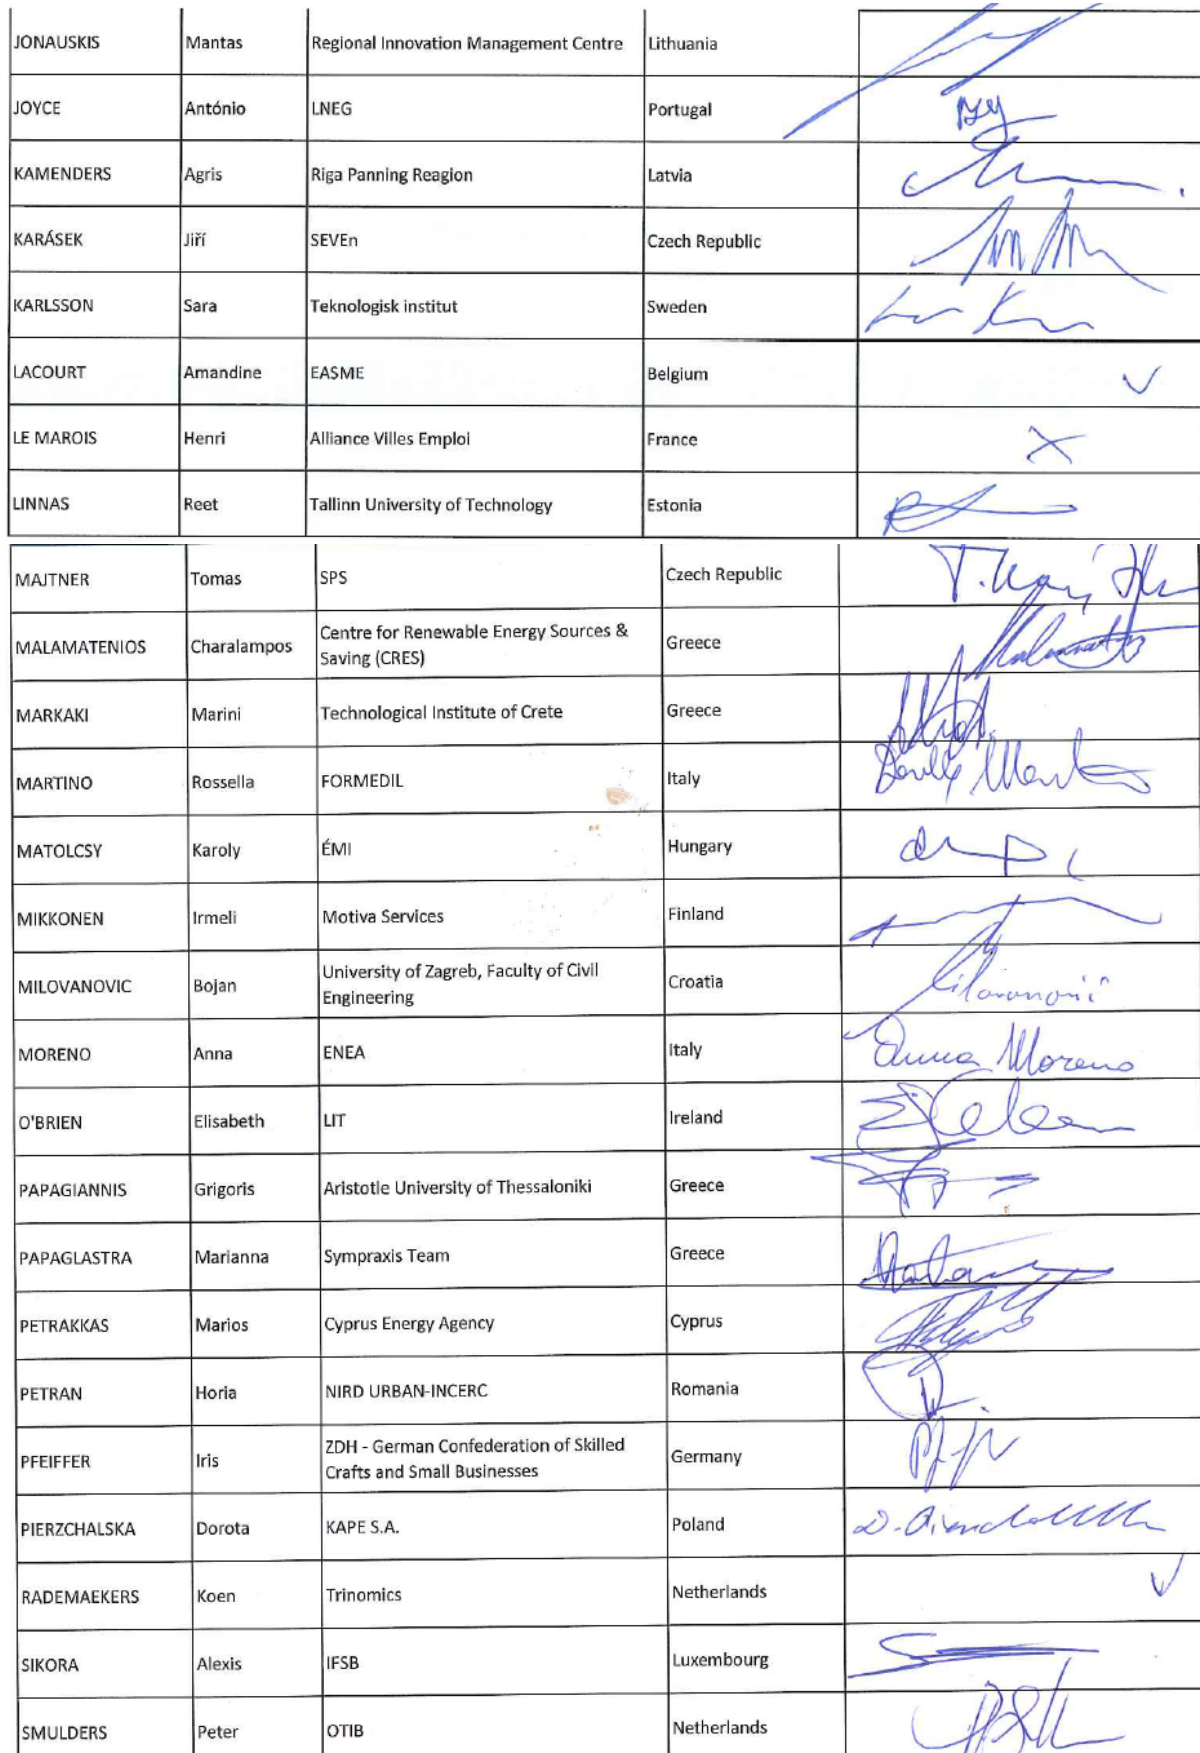 JONAUSKIS Mantas Regional Innovation Management Centre Lithuania
JOYCE António LNEG Portugal
KAMENDERS Agris Riga Panning Reagion Latvia
KARÁSEK Jiří SEVEn Czech Republic
KARLSSON Sara Teknologisk institut Sweden
LACOURT Amandine EASME Belgium
LE MAROIS Henri Alliance Villes Emploi France
LINNAS Reet Tallinn University of Technology Estonia
MAJTNER Tomas SPS Czech Republic
MALAMATENIOS Charalampos Centre for Renewable Energy Sources & Greece
Saving (CRES)
MARKAKI Marini Technological Institute of Crete Greece
MARTINO Rossella FORMEDIL Italy
MATOLCSY Karoly ÉMI Hungary
MIKKONEN Irmeli Motiva Services Finland
MILOVANOVIC Bojan University of Zagreb, Faculty of Civil Croatia
Engineering
MORENO Anna ENEA Italy Anna Moreno
O'BRIEN Elisabeth LIT Ireland
PAPAGIANNIS Grigoris Aristotle University of Thessaloniki Greece
PAPAGLASTRA Marianna Sympraxis Team Greece
PETRAKKAS Marios Cyprus Energy Agency Cyprus
PETRAN Horia NIRD URBAN-INCERC Romania
PFEIFFER Iris ZDH - German Confederation of Skilled Germany
Crafts and Small Businesses
PIERZCHALSKA Dorota KAPE S.A. Poland
RADEMAEKERS Koen Trinomics Netherlands
SIKORA Alexis IFSB Luxembourg
SMULDERS Peter OTIB Netherlands